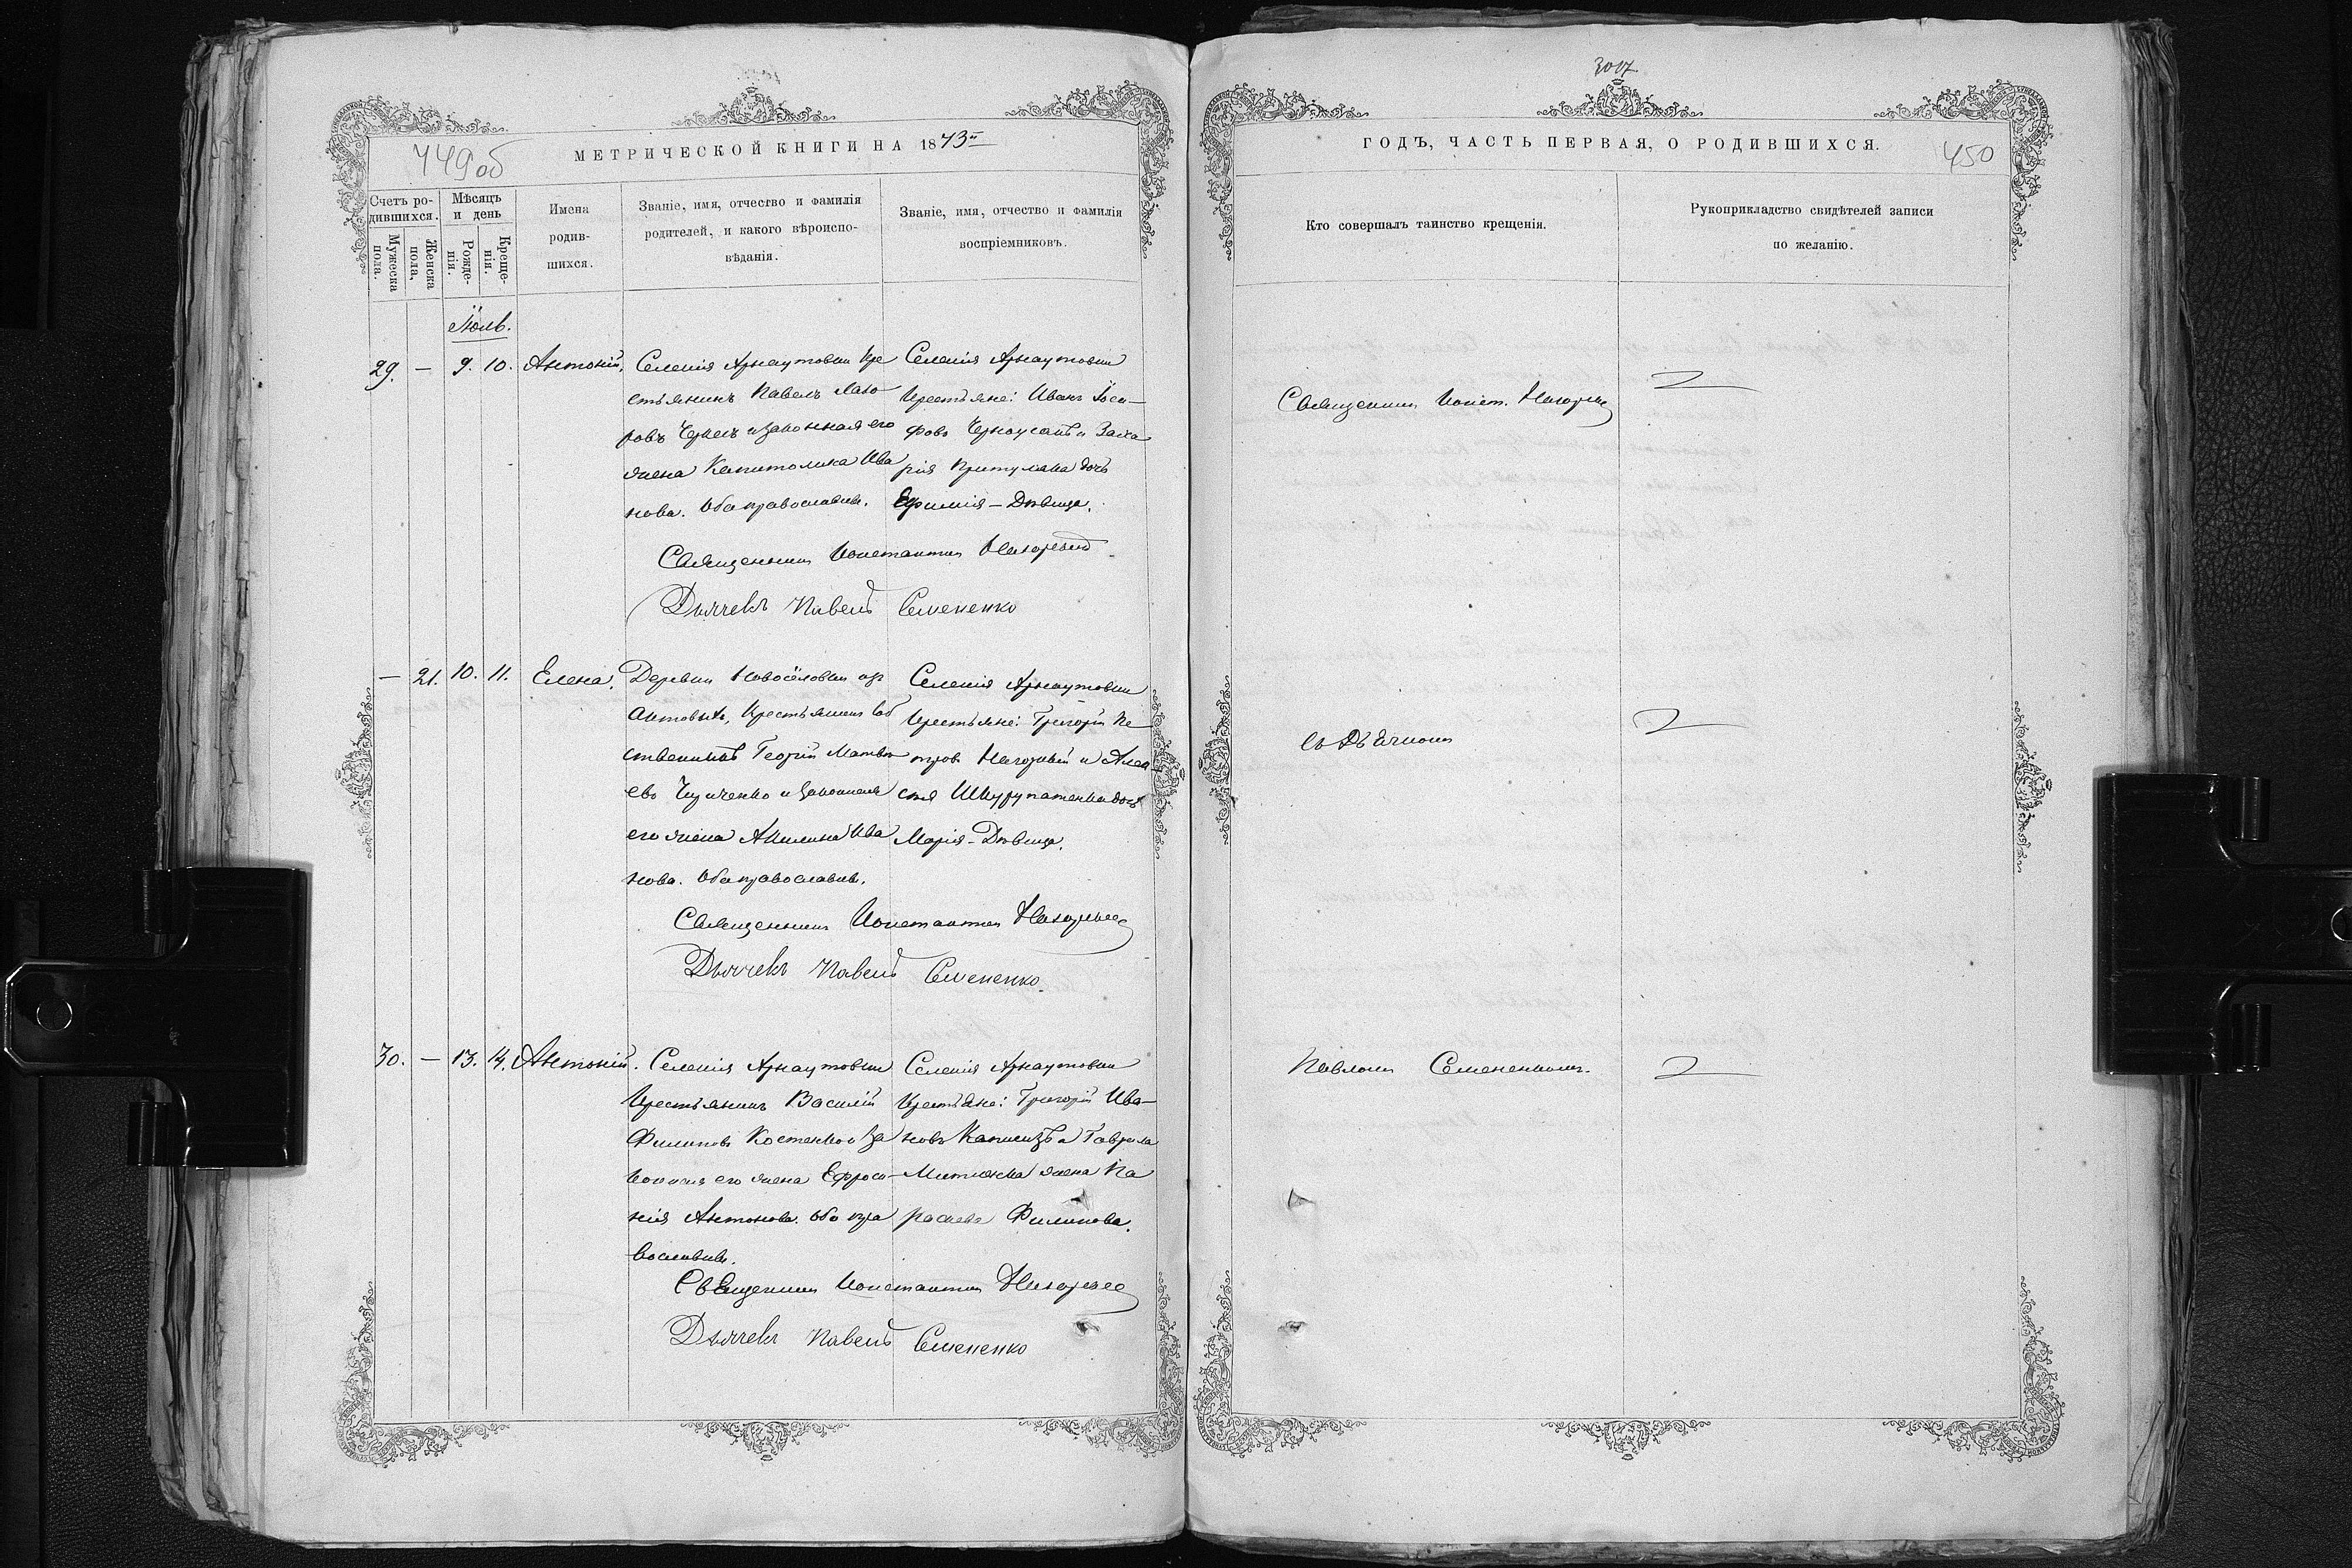 449об
МЕТРИЧЕСКОЙ КНИГИ НА 1873й
Счетъ ро-
дившихся.
Мужеска
пола.
Женска
пола,
Мѣсяцъ
и день
Рожде-
нія.
Креще-
нія.
Имена
родив-
шихся.
Званіе, имя, отчество и фамилія
родителей, и какого вѣроиспо-
вѣданія.
Званіе, имя, отчество и фамилія
воспріемниковъ.
Іюль.
29. — 9. 10. Антоній.
Селенія Арнаутовки кре
стьянинъ Павелъ Лазо
ровъ и законная его
жена Капитолина Ива
нова. Оба православн.
Селенія Арнаутовки
крестьяне: Иванъ Іоси-
фовъ и Заха
рія дочь
Ефимія — Дѣвица.
Священникъ Константин
Дьячекъ Павелъ Семененко
— 21. 10. 11. Елена.
Деревни
крестьянин соб
ственникъ Георгій Матвѣ
евъ и законная
его жена Акилина Ива
нова. Оба православн.
Селенія Арнаутовки
крестьяне: Григорій Пе
тровъ и Алек
сѣя дочь
Марія - Дѣвица.
Священникъ Константин
Дьячекъ Павелъ Семененко.
30. — 13. 14. Антоній.
Селенія Арнаутовки
крестьянинъ Василій
Филиповъ Костенко и за
конная его жена Ефроси-
нія Антонова. Оба пра
вославн.
Селенія Арнаутовки
крестьяне: Григорій Ива-
новъ и Гаврила
жена Па
раскева Филипова.
Священникъ Константин
Дьячекъ Павелъ Семененко
3017.
ГОДЪ, ЧАСТЬ ПЕРВАЯ, О РОДИВШИХСЯ.
450
Кто совершалъ таинство крещенія.
Рукоприкладство свидѣтелей записи
по желанію.
Священникъ Конст.
съ Дьячкомъ
Павломъ Семененкомъ.